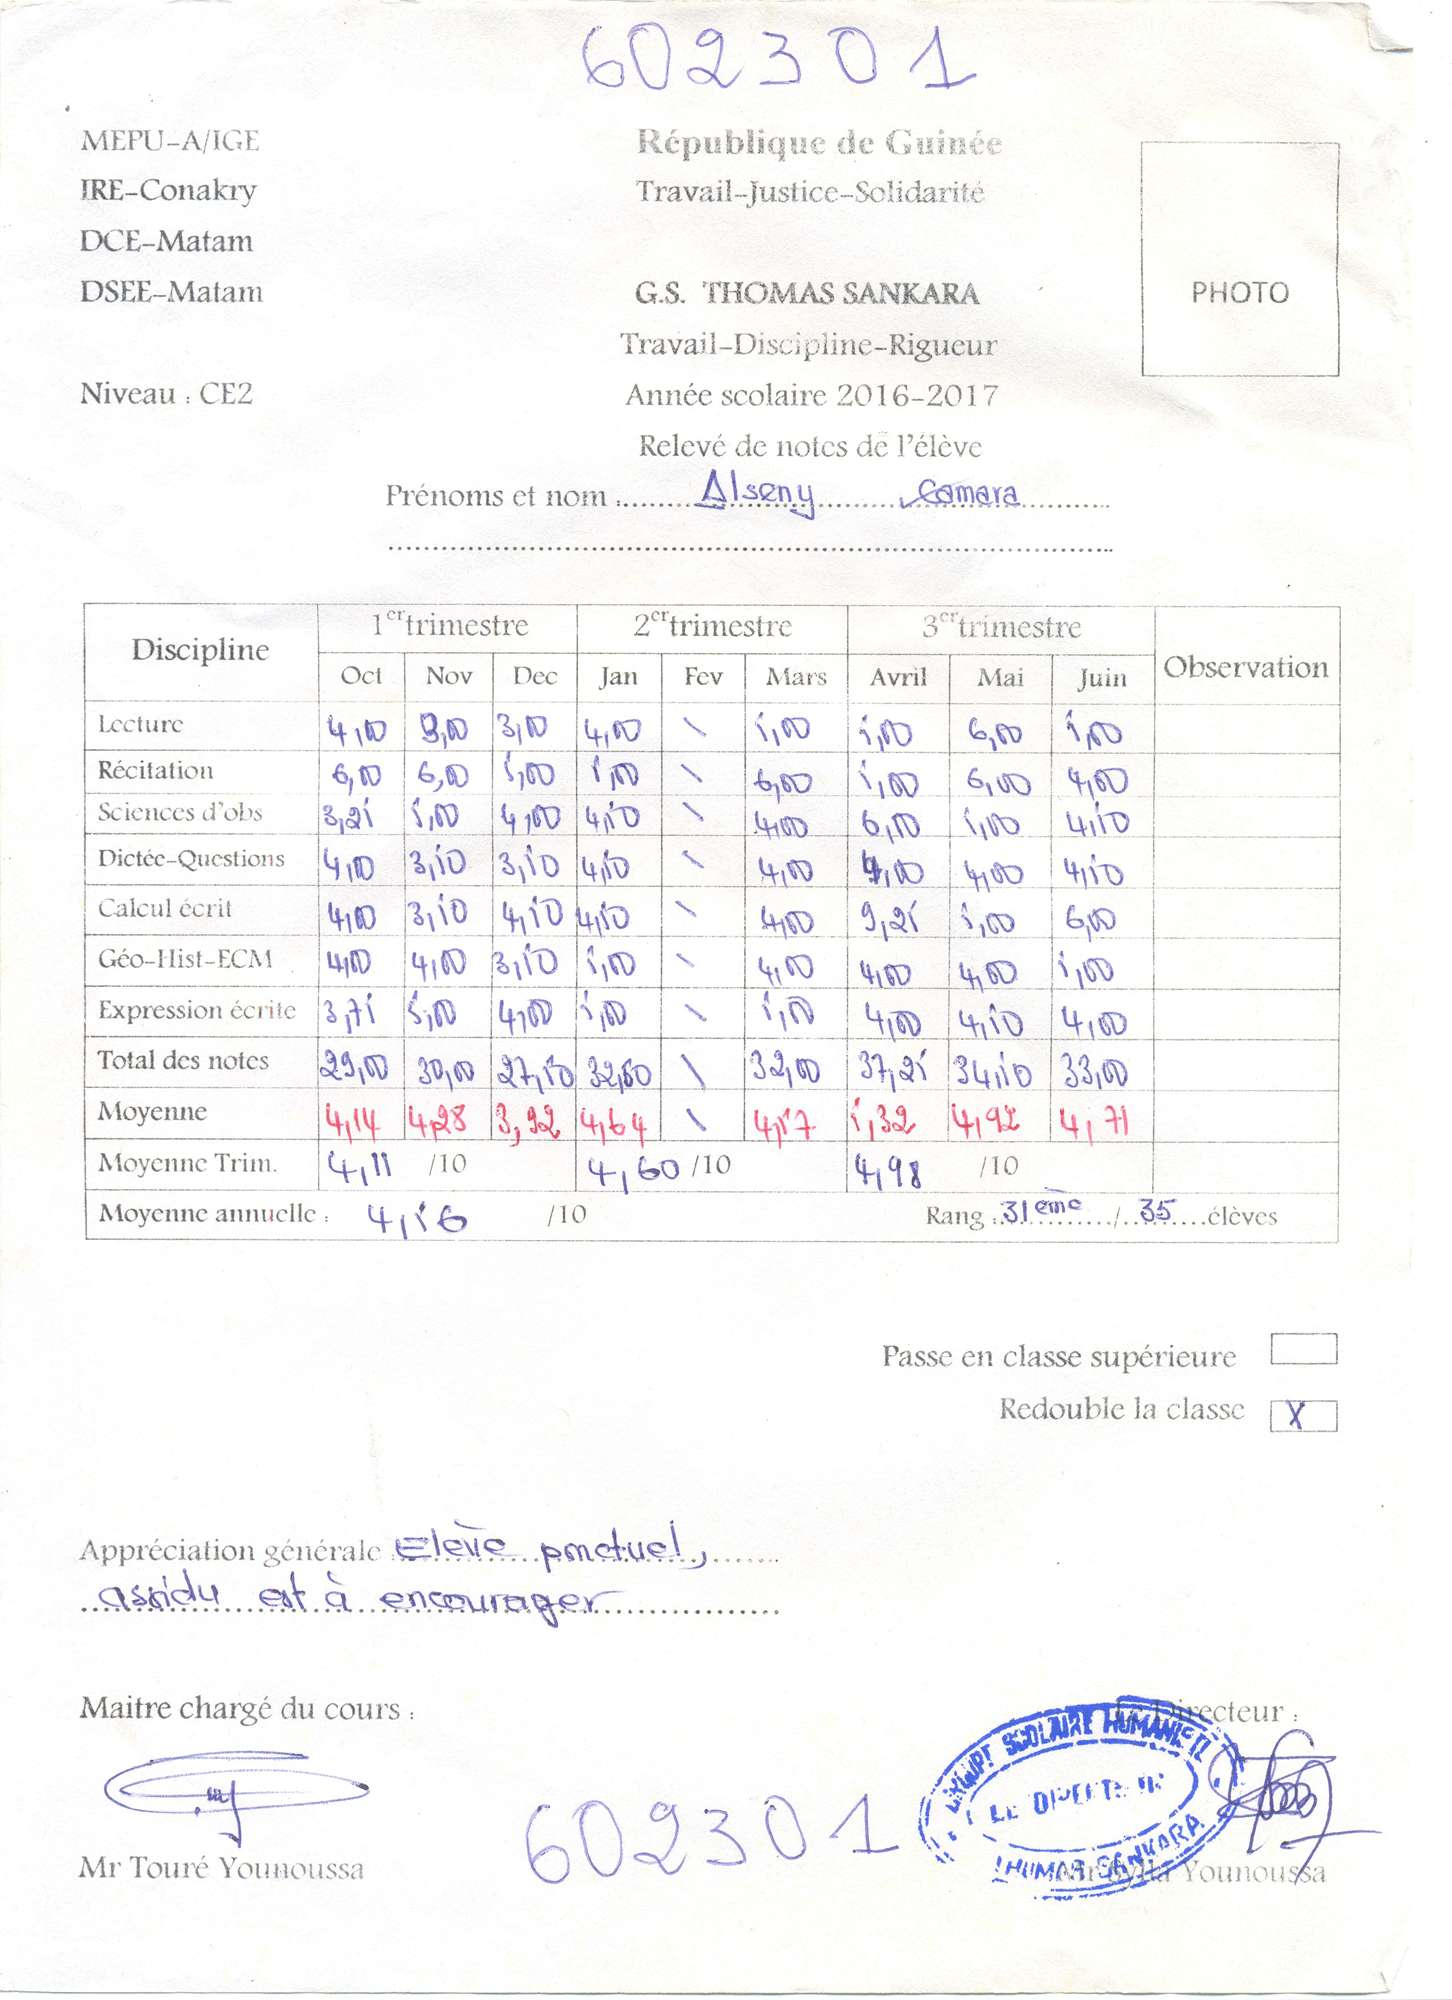 602301
MEPU-A/IGE
République de Guinée
IRE-Conakry
Travail-Justice-Solidarité
DCE-Matam
DSEE-Matam
G.S. THOMAS SANKARA
PHOTO
Travail-Discipline-Rigueur
Niveau : CE2
Année scolaire 2016-2017
Relevé de notes de l'élève
Prénoms et nom : Alseny Camara
Discipline 1er trimestre 2er trimestre 3er trimestre Observation
Oct Nov Dec Jan Fev Mars Avril Mai Juin
Lecture 4,00 3,00 3,00 4,00 \ 5,00 5,00 6,00 5,00
Récitation 6,00 6,00 5,00 5,00 \ 6,00 5,00 6,00 4,00
Sciences d'obs 3,25 5,00 4,00 4,50 \ 4,00 6,00 5,00 4,50
Dictée-Questions 4,00 3,50 3,50 4,50 \ 4,00 4,00 4,00 4,50
Calcul écrit 4,00 3,50 4,50 4,50 \ 4,00 9,25 5,00 6,00
Géo-Hist-ECM 4,00 4,00 3,50 5,00 \ 4,00 4,00 4,00 5,00
Expression écrite 3,75 5,00 4,00 5,00 \ 5,00 4,00 4,50 4,00
Total des notes 29,00 30,00 27,50 32,50 \ 32,00 37,25 34,50 33,00
Moyenne 4,14 4,28 3,92 4,64 \ 4,57 5,32 4,92 4,71
Moyenne Trim. 4,11 /10 4,60 /10 4,98 /10
Moyenne annuelle : 4,56 /10 Rang : 31ème / 35 élèves
Passe en classe supérieure
Redouble la classe X
Appréciation générale : Elève ponctuel,
assidu est à encourager
Maitre chargé du cours :
Le Directeur :
GROUPE SCOLAIRE HUMANISTE
LE DIRECTEUR
THOMAS SANKARA
602301
Mr Touré Younoussa
Mr Sylla Younoussa